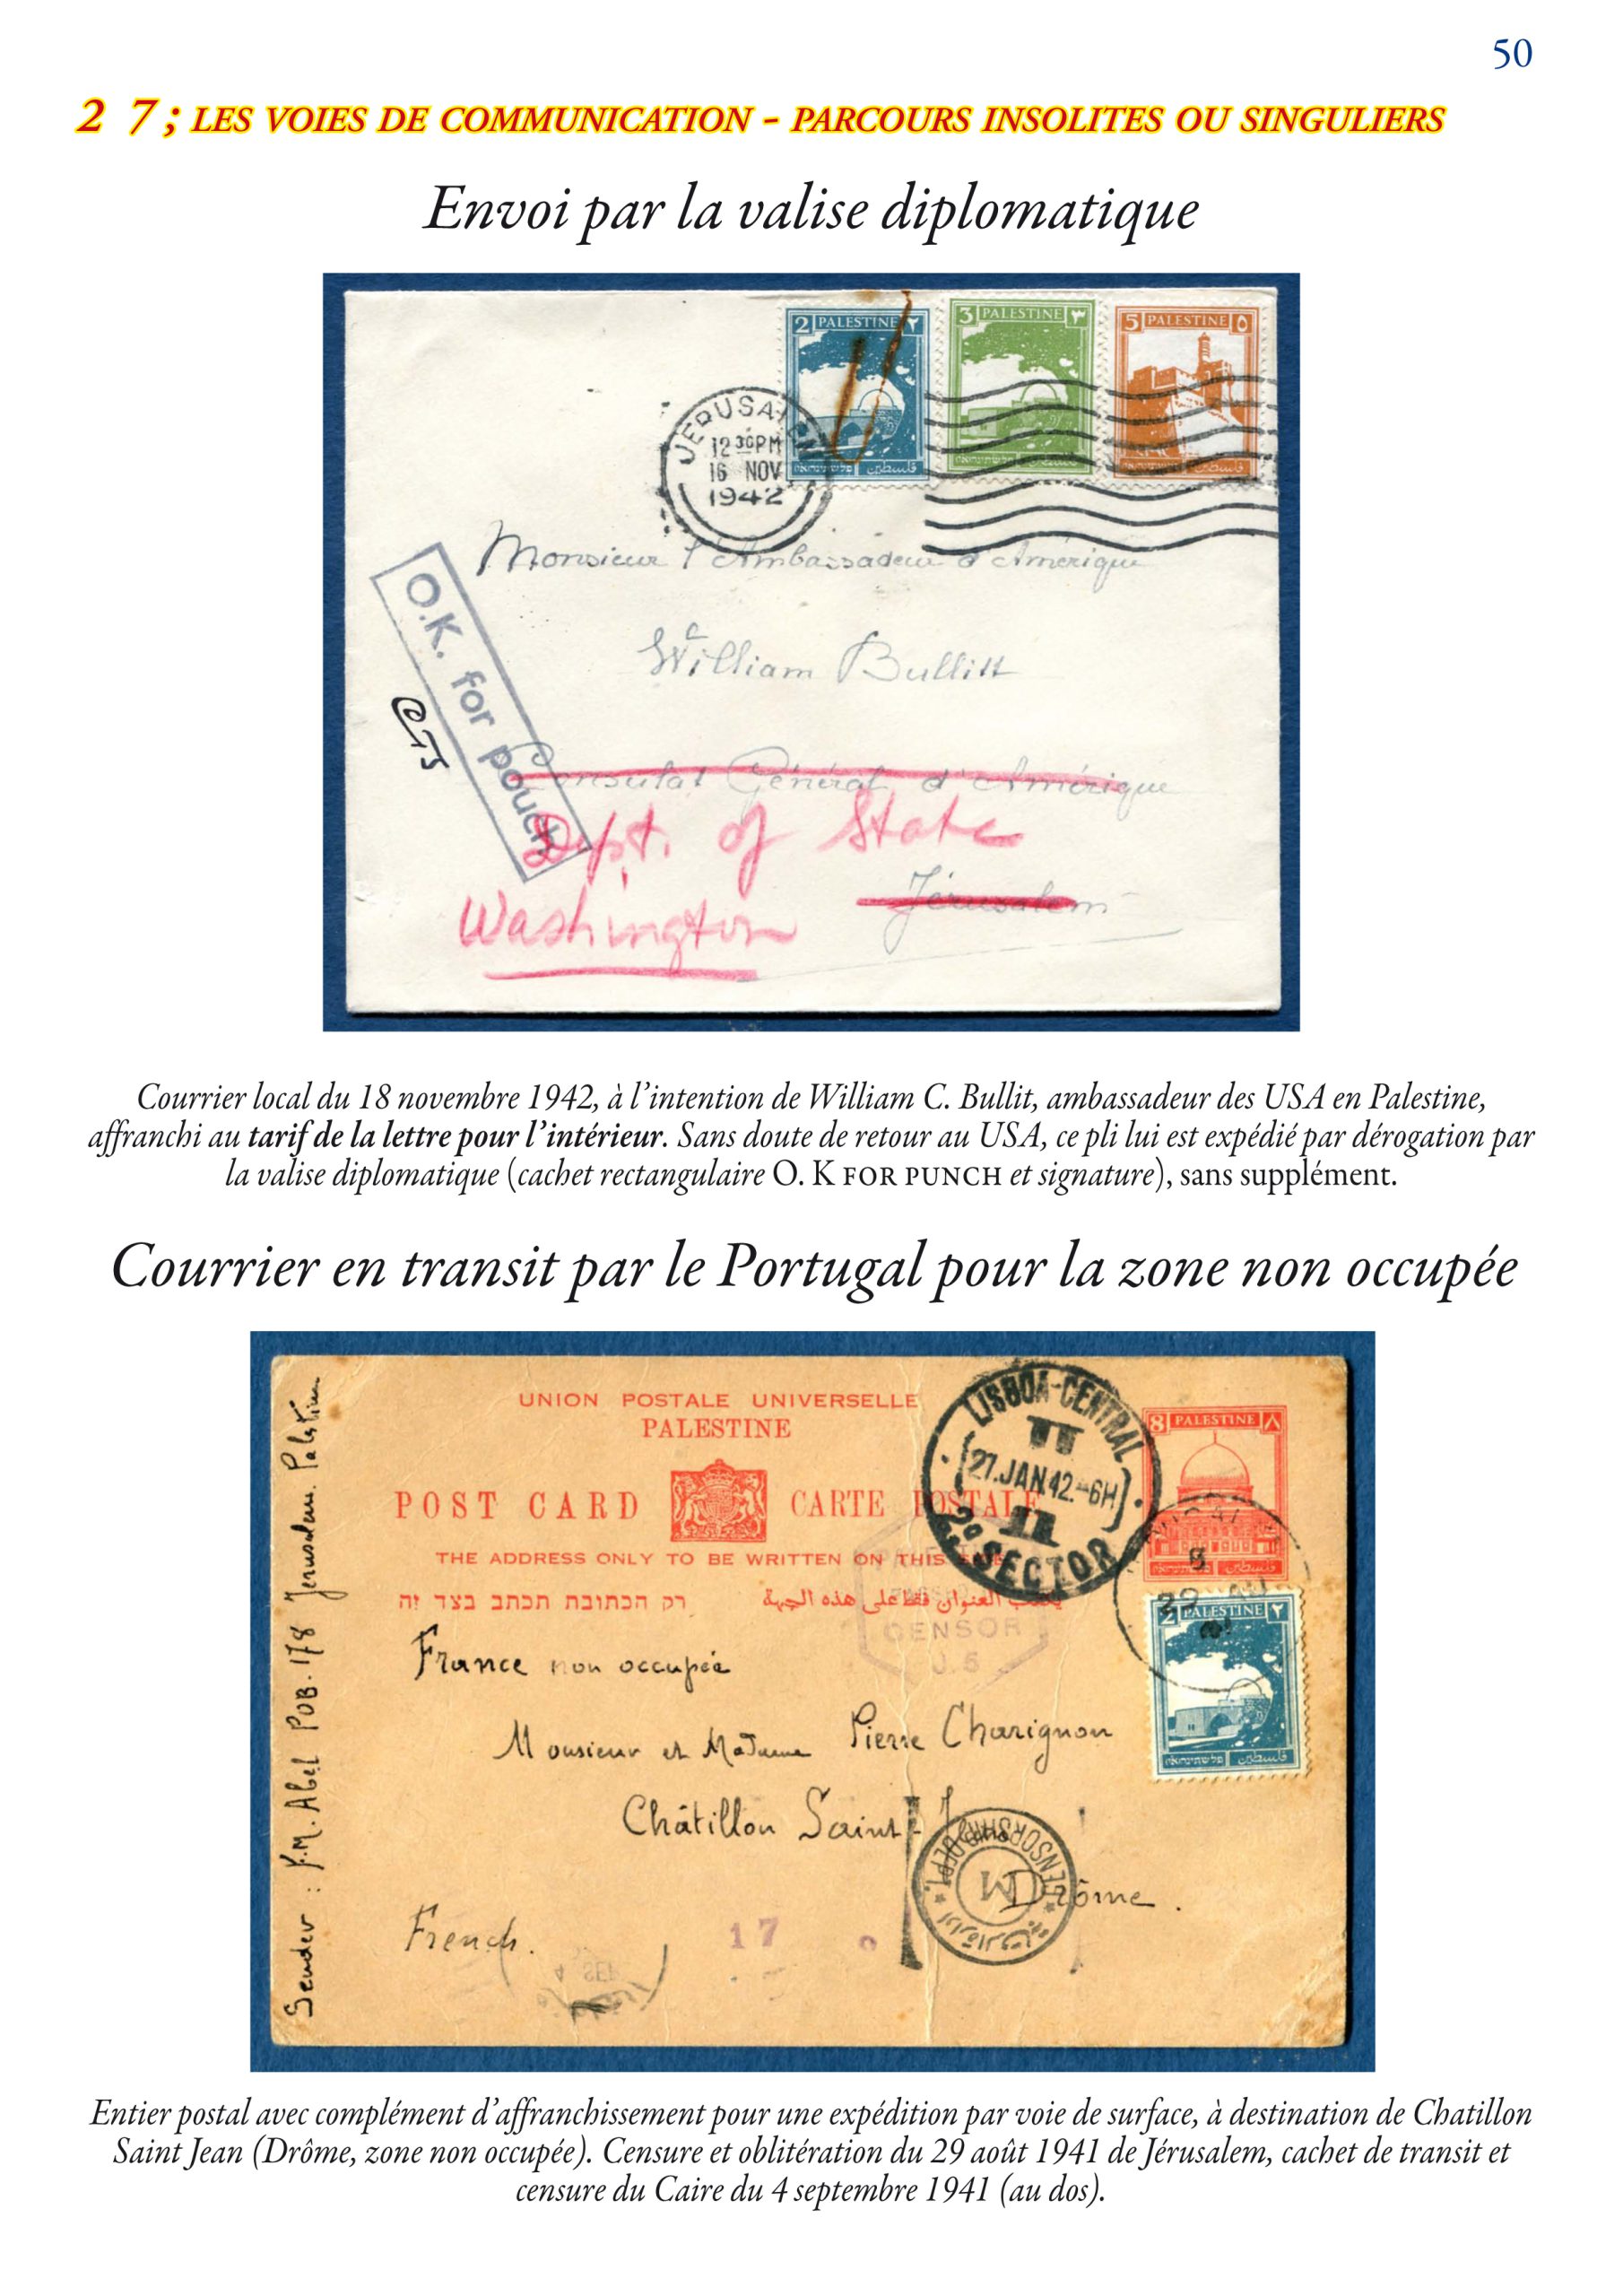 50
2 7 ; LES VOIES DE COMMUNICATION - PARCOURS INSOLITES OU SINGULIERS
Envoi par la valise diplomatique
2 PALESTINE ٢
3 PALESTINE ٣
5 PALESTINE ٥
JERUSALEM
12 30PM
16 NOV
1942
Monsieur l'Ambassadeur d'Amérique
O.K. for pouch
William C Bullitt
Consulat Général d'Amérique
Dept. of State
Jérusalem
Washington
Courrier local du 18 novembre 1942, à l'intention de William C. Bullit, ambassadeur des USA en Palestine,
affranchi au tarif de la lettre pour l'intérieur. Sans doute de retour au USA, ce pli lui est expédié par dérogation par
la valise diplomatique (cachet rectangulaire O. K FOR PUNCH et signature), sans supplément.
Courrier en transit par le Portugal pour la zone non occupée
UNION POSTALE UNIVERSELLE
PALESTINE
POST CARD CARTE POSTALE
THE ADDRESS ONLY TO BE WRITTEN ON THIS SIDE
רק הכתובת תכתב בצד זה
يكتب العنوان فقط على هذه الجهة
LISBOA-CENTRAL
27.JAN.42.-6H
2º SECTOR
8 PALESTINE ٨
2 PALESTINE ٢
CENSOR
J.5
France non occupée
Monsieur et Madame Pierre Charignon
Châtillon Saint-Jean
Drôme.
CENSORSHIP.DEPT.
M
French.
17
4 SEP
Sender : F.M. Abel POB. 178 Jerusalem. Palestine
Entier postal avec complément d'affranchissement pour une expédition par voie de surface, à destination de Chatillon
Saint Jean (Drôme, zone non occupée). Censure et oblitération du 29 août 1941 de Jérusalem, cachet de transit et
censure du Caire du 4 septembre 1941 (au dos).